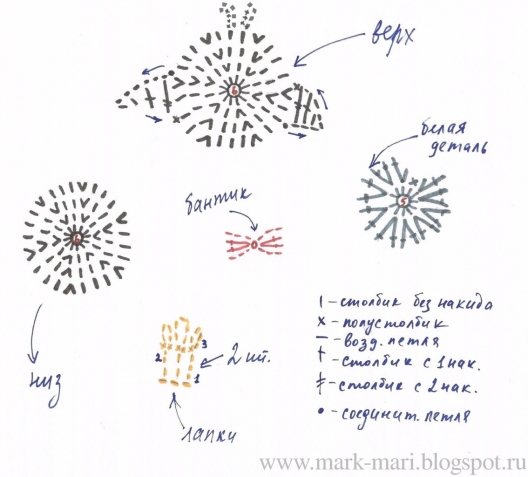 верх
белая
деталь
бантик
6
5
6
низ
2 шт.
2
3
1
лапки
| - столбик без накида
x - полустолбик
— - возд. петля
† - столбик с 1 нак.
‡ - столбик с 2 нак.
• - соединит. петля
www.mark-mari.blogspot.ru